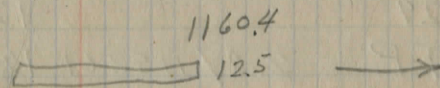 1160.4
12.5